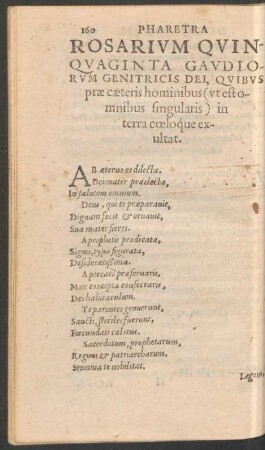 160 PHARETRA
ROSARIVM QVIN-
QVAGINTA GAVDIO-
RVM GENITRICIS DEI, QVIBVS
præ cæteris hominibus (vt est o-
mnibus singularis) in
terra cœloque ex-
ultat.
AB æterno es dilecta,
Dei mater præelecta,
In salutem omnium.
Deus, qui te præparauit,
Dignam fecit & ornauit,
Sua mater fieres.
A prophetis prædicata,
Signis, typis figurata,
Desideratissima.
A peccato præseruaris,
Mox concepta consecraris
Dei habitaculum.
Te parentes genuerunt,
Sancti, steriles fuerunt,
Fœcundati cælitus.
Sacerdotum, prophetarum,
Regum & patriarcharum,
Stemma te nobilitat.